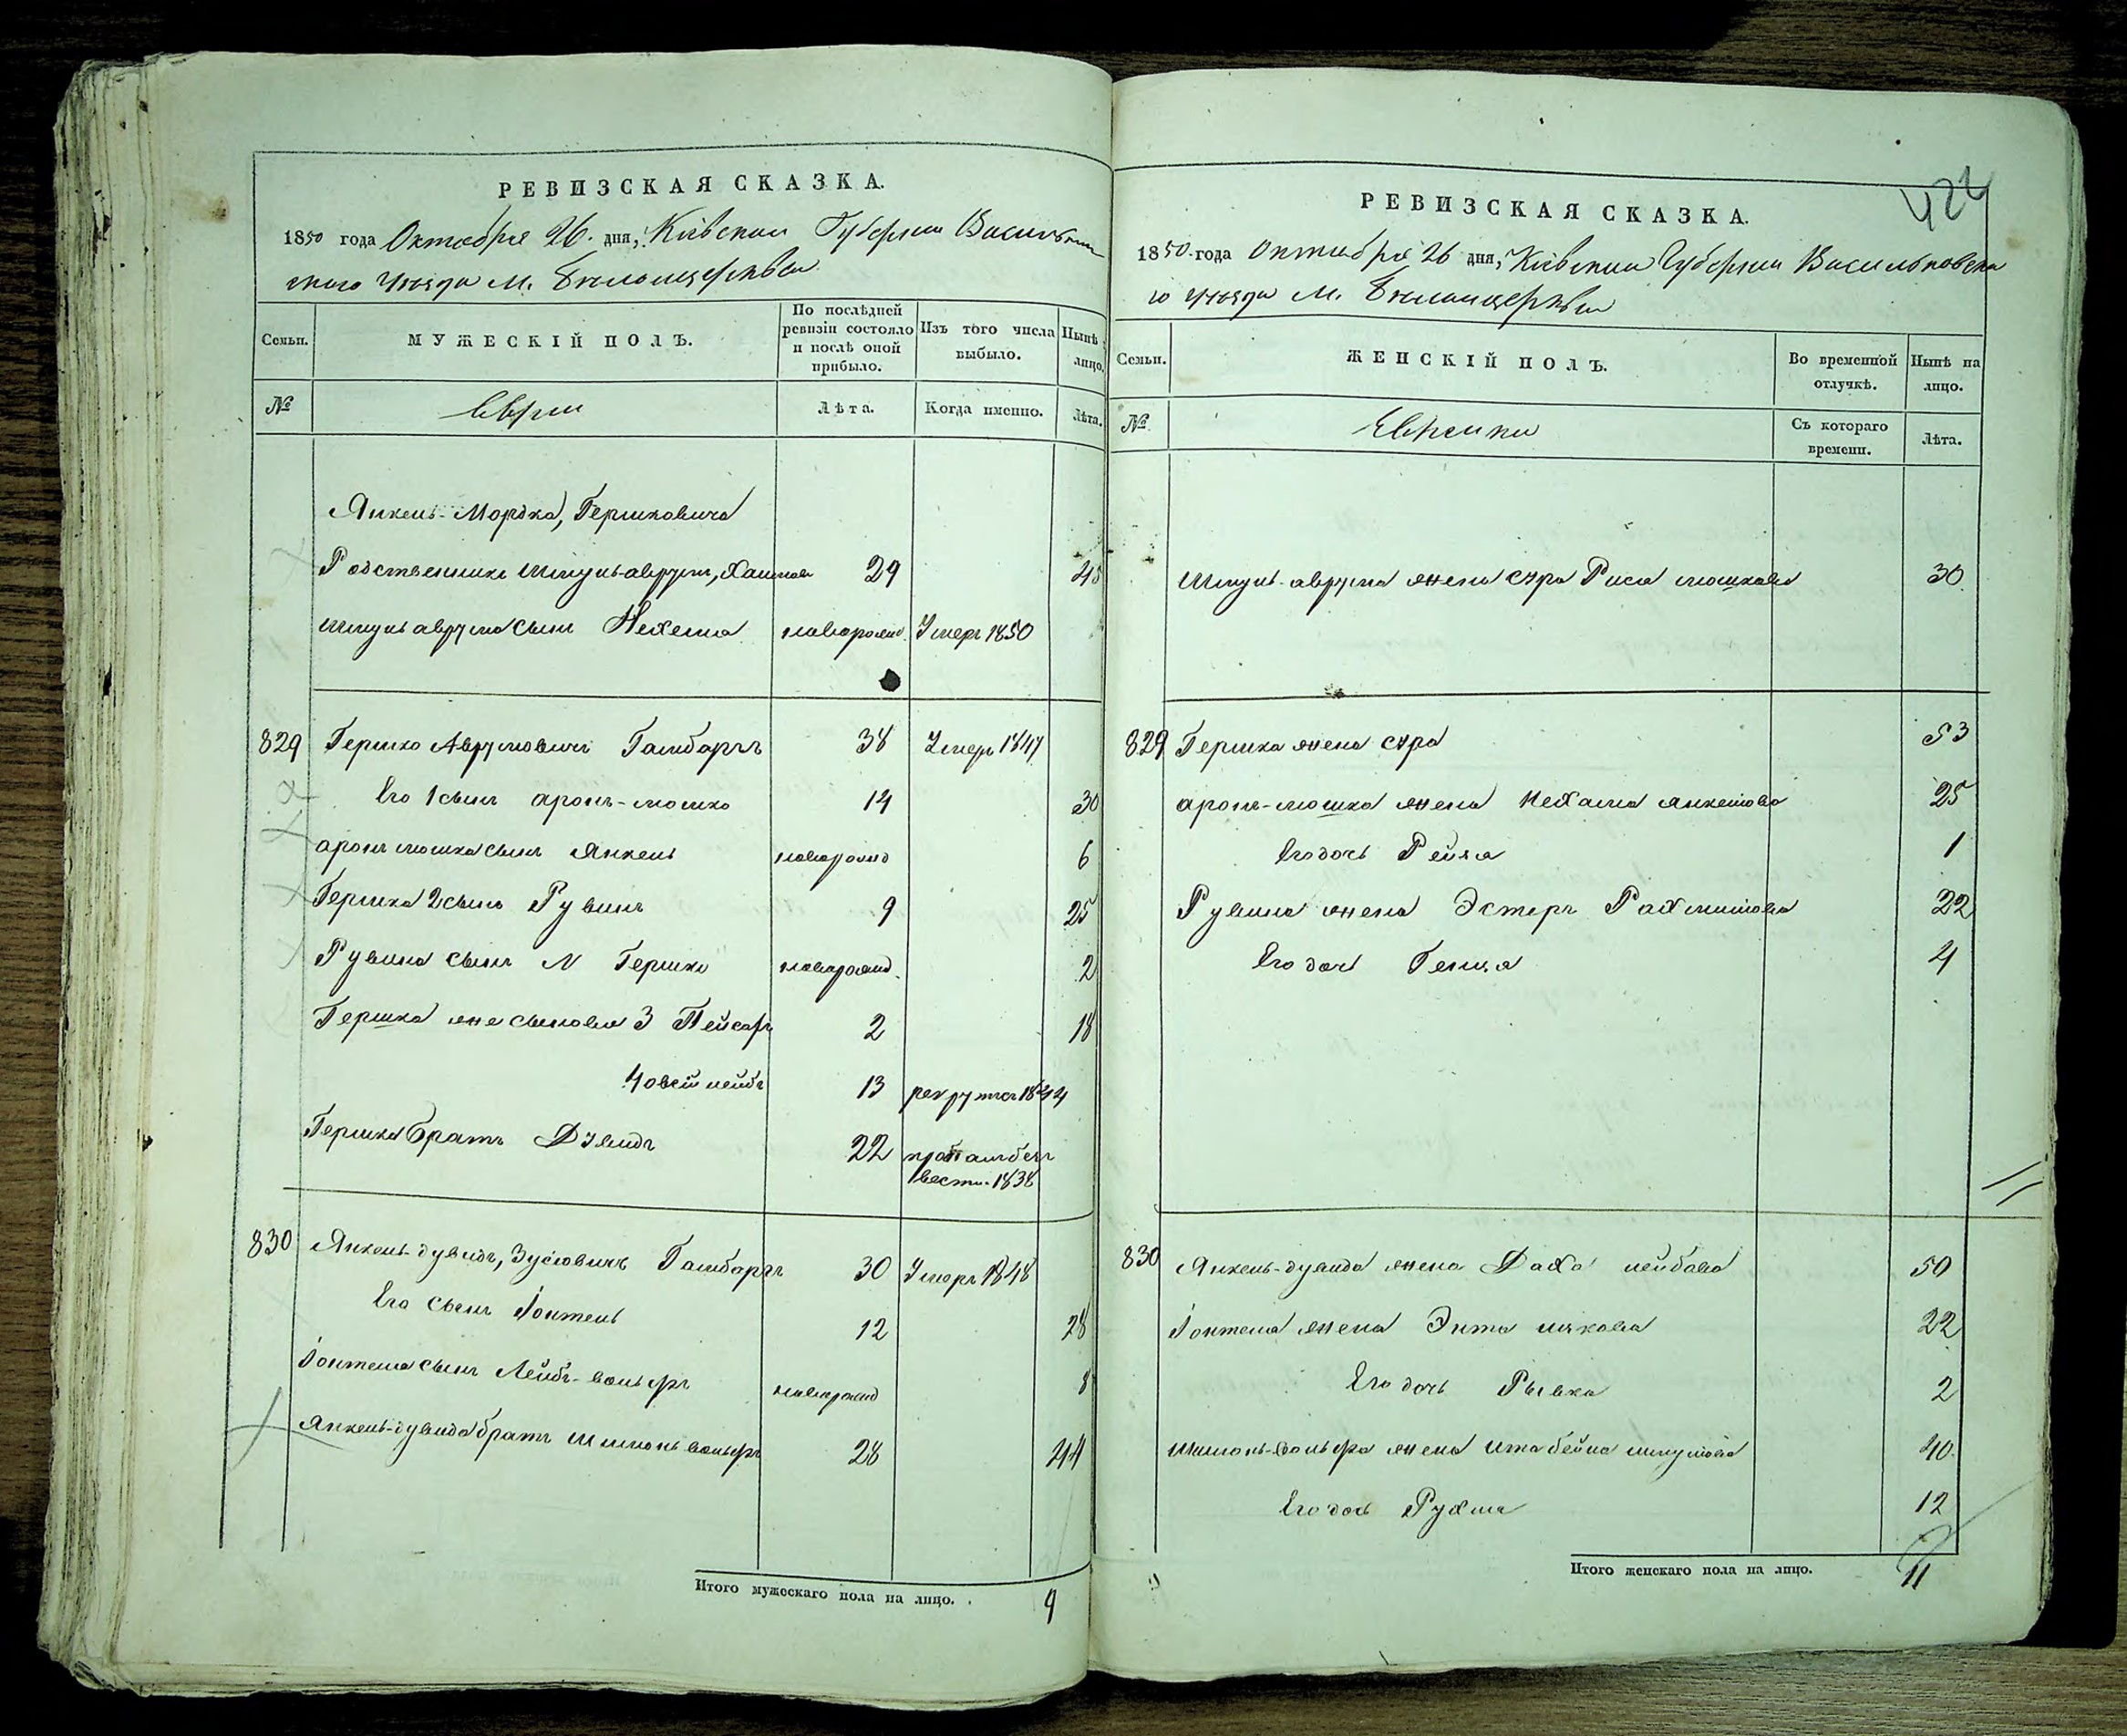 РЕВИЗСКАЯ СКАЗКА.
1850 года Октября 26. дня, Кіевской Губерніи Васильков
скаго Уѣзда М. Бѣлоцерквы
Семьи.
МУЖЕСКІЙ ПОЛЪ.
По послѣдней ревизіи состояло и послѣ оной прибыло.
Изъ того числа выбыло.
Нынѣ на лицо.
№
Евреи
Лѣта.
Когда именно.
Лѣта.
Янкель-Мордка, Гершковича
Родственникъ Шмуль-аврумъ, Хаимовъ 29 45
Шмуль аврума сынъ Нехемія новорожд. Умеръ 1850
829 Гершко Аврумовичъ Гамбаргъ 38 Умеръ 1847
Его 1 сынъ аронъ-мошко 14 30
аронъ мошка сынъ Янкель новорожд 6
Гершка 2 сынъ Рувинъ 9 25
Рувина сынъ N Гершко новорожд. 2
Гершка же сыновья 3 Пейсахъ 2 18
4 овсѣй лейбъ 13 рекрутъ 1844
Гершка братъ Дувидъ 22 пропалъ безъ
вести. 1838
830 Янкель-дувидъ, Зусіовичъ Гамбаргъ 30 Умеръ 1848
Его сынъ Іонтель 12 28
Іонтеля сынъ Лейбъ-вольфъ новорожд 8
Янкель-дувида братъ Шимонь вольфъ 28 44
Итого мужескаго пола на лицо. . 9
422
РЕВИЗСКАЯ СКАЗКА.
1850. года Октября 26 дня, Кіевской Губерніи Васильковска
го Уѣзда М. Бѣлоцерквы
Семьи.
ЖЕНСКІЙ ПОЛЪ.
Во временной отлучкѣ.
Нынѣ на лицо.
№
Еврейки
Съ котораго времени.
Лѣта.
Шмуль-аврума жена сура Рися мошкова 30
829 Гершка жена сура 53
аронъ-мошка жена Нехама янкелева 25
Его дочь Рейзя 1
Рувина жена Эстеръ Рахмилова 22
Его дочь Генця 4
830 Янкель-дувида жена Даха лейбова 50
Іонтеля жена Энта ицкова 22
Его дочь Рывка 2
Шимонь-вольфа жена Ита бейла шмулева 40.
Его дочь Рухля 12
Итого женскаго пола на лицо. 11